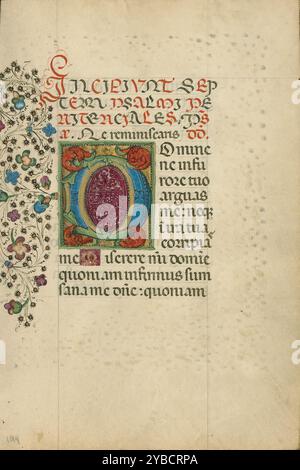 INCIPIVNT SEP
TEM PSALMI PE
NITENCIALES. PS
Ne reminiscaris
Domine
ne in fu
rore tuo
arguas
me: neq
in ira tua
corripia
me Miserere mei domine
quoniam infirmus sum
sana me dne: quoniam
alamy
Image ID: 2YBCRPA
www.alamy.com